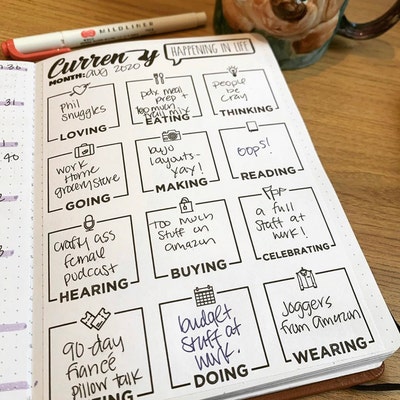 MILDLINER
Currently
HAPPENING IN LIFE
MONTH: aug 2020
phil
snuggles
LOVING
pdx meal
prep +
too much
trail mix
EATING
people
be
cray
THINKING
work
home
grocery store
GOING
bujo
layouts-
yay!
MAKING
oops!
READING
crafty ass
female
podcast
HEARING
too much
stuff on
amazon
BUYING
a full
staff at
work!
CELEBRATING
90-day
fiancé
pillow talk
budget,
staff at
work.
DOING
joggers
from amazon
WEARING
31
40